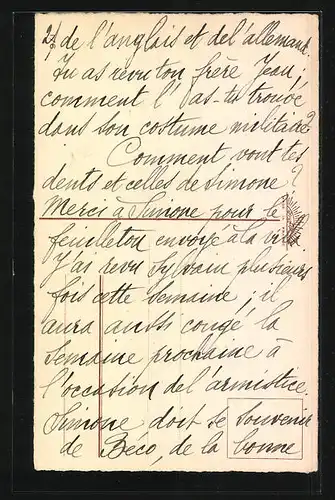 2/ de l'anglais et de l'allemand.
Tu as revu ton frère Jean,
comment l'as-tu trouvé
dans son costume militaire?
Comment vont tes
dents et celles de Simone?
Merci à Simone pour le
feuilleton envoyé à la
J'ai revu Sylvain plusieurs
fois cette semaine; il
aura aussi congé la
semaine prochaine à
l'occasion de l'armistice.
Simone doit se souvenir
de Béco, de la bonne